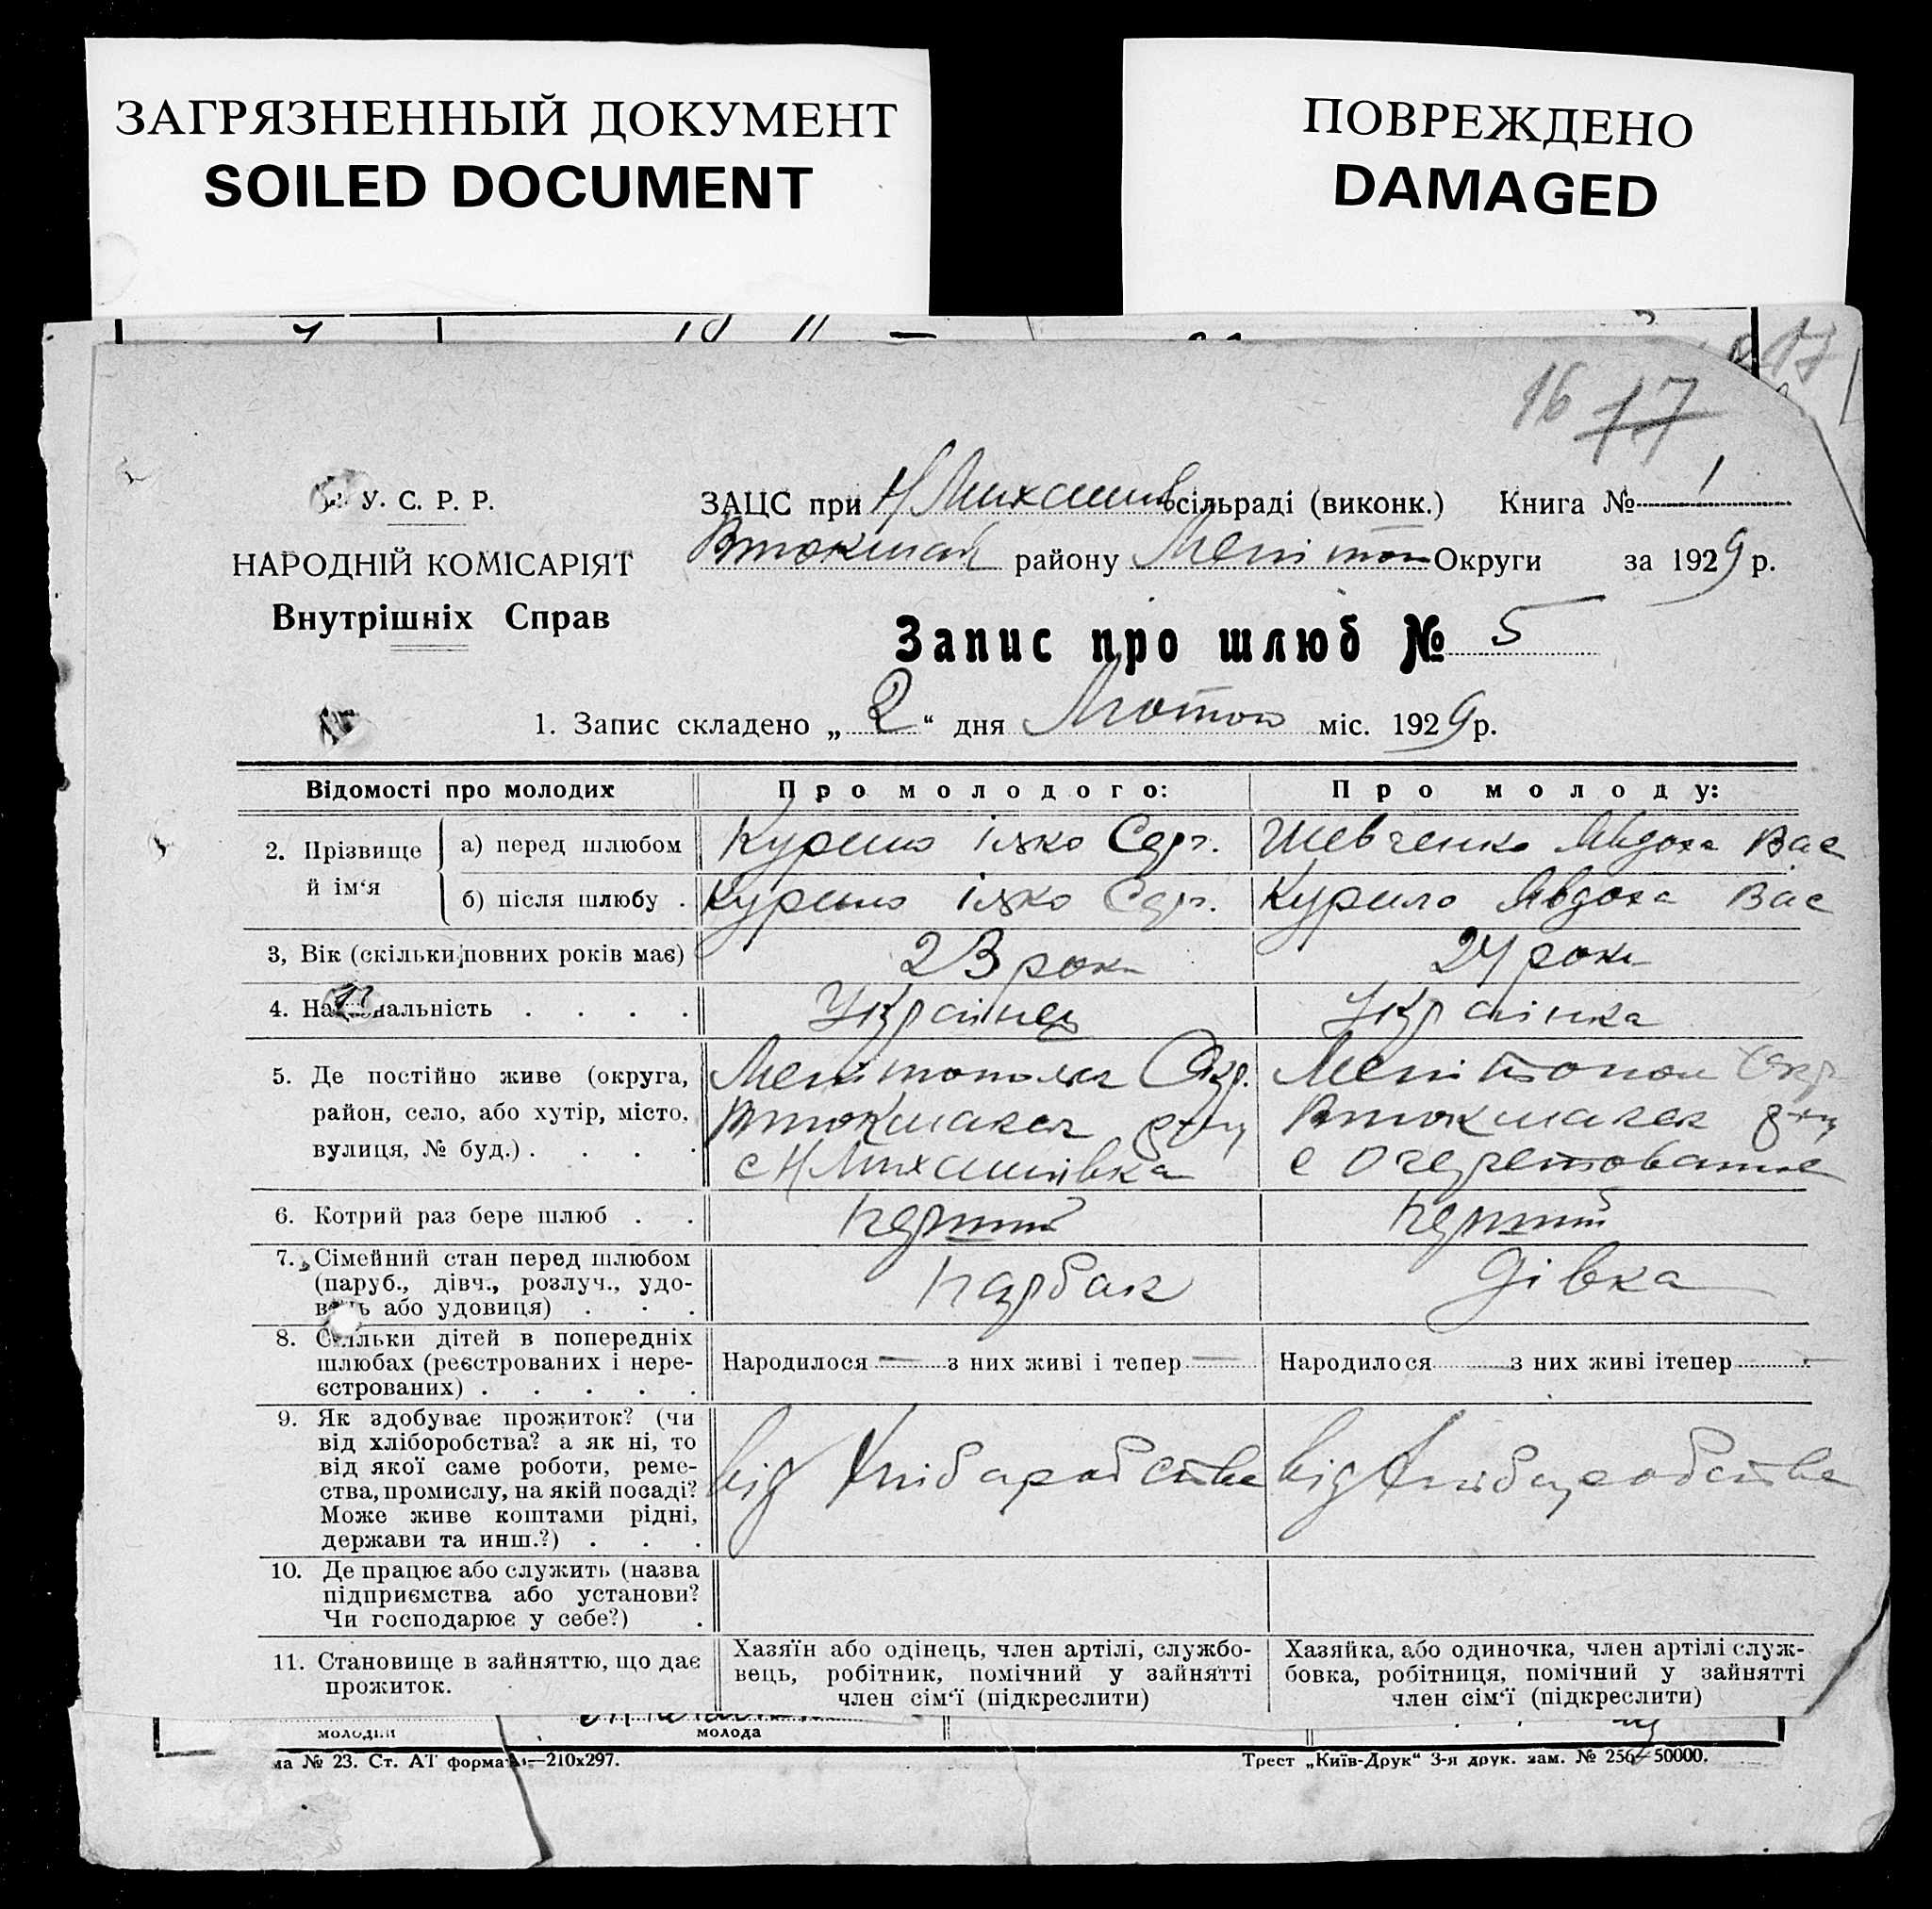 ЗАГРЯЗНЕННЫЙ ДОКУМЕНТ
SOILED DOCUMENT
ПОВРЕЖДЕНО
DAMAGED
17
16 17
У. С. Р. Р.
НАРОДНІЙ КОМІСАРІЯТ
Внутрішніх Справ
ЗАЦС при Н Михайлів сільраді (виконк.) Книга № 1
Втокмак району Меліто Округи за 1929 р.
Запис про шлюб № 5
1. Запис складено „ 2 “ дня Лютого міс. 1929 р.
Відомості про молодих
Про молодого:
Про молоду:
2. Прізвище й ім‘я
а) перед шлюбом
Курило Ілко Серг.
Шевченко Явдоха Вас
б) після шлюбу .
Курило Ілко Серг.
Курило Явдоха Вас
3, Вік (скільки повних років має)
23 роки
24 роки
4. Національність . . . .
Українец
Українка
5. Де постійно живе (округа,
район, село, або хутір, місто,
вулиця, № буд.) . . . .
Мелітопольск Окр.
Втокмакск р-ну
с Н Михайлівка
Мелітопол Окр
Втокмакск р-ну
с Очеретовате
6. Котрий раз бере шлюб . .
Перший
Перший
7. Сімейний стан перед шлюбом
(паруб., дівч., розлуч., удо-
вець або удовиця) . . .
Парбак
Дівка
8. Скільки дітей в попередніх
шлюбах (реєстрованих і нере-
єстрованих) . . . . .
Народилося — з них живі і тепер —
Народилося з них живі ітепер —
9. Як здобуває прожиток? (чи
від хліборобства? а як ні, то
від якої саме роботи, реме-
ства, промислу, на якій посаді?
Може живе коштами рідні,
держави та инш.?) . . .
від Хлібаробства
від Хлібаробства
10. Де працює або служить (назва
підприємства або установи?
Чи господарює у себе?) .
11. Становище в зайняттю, що дає
прожиток.
Хазяїн або одінець, член артілі, службо-
вець, робітник, помічний у зайнятті
член сім‘ї (підкреслити)
Хазяйка, або одиночка, член артілі служ-
бовка, робітниця, помічний у зайнятті
член сім‘ї (підкреслити)
молодий
молода
ма № 23. Ст. АТ формат —210х297.
Трест „Київ-Друк“ 3-я друк. зам. № 256 50000.